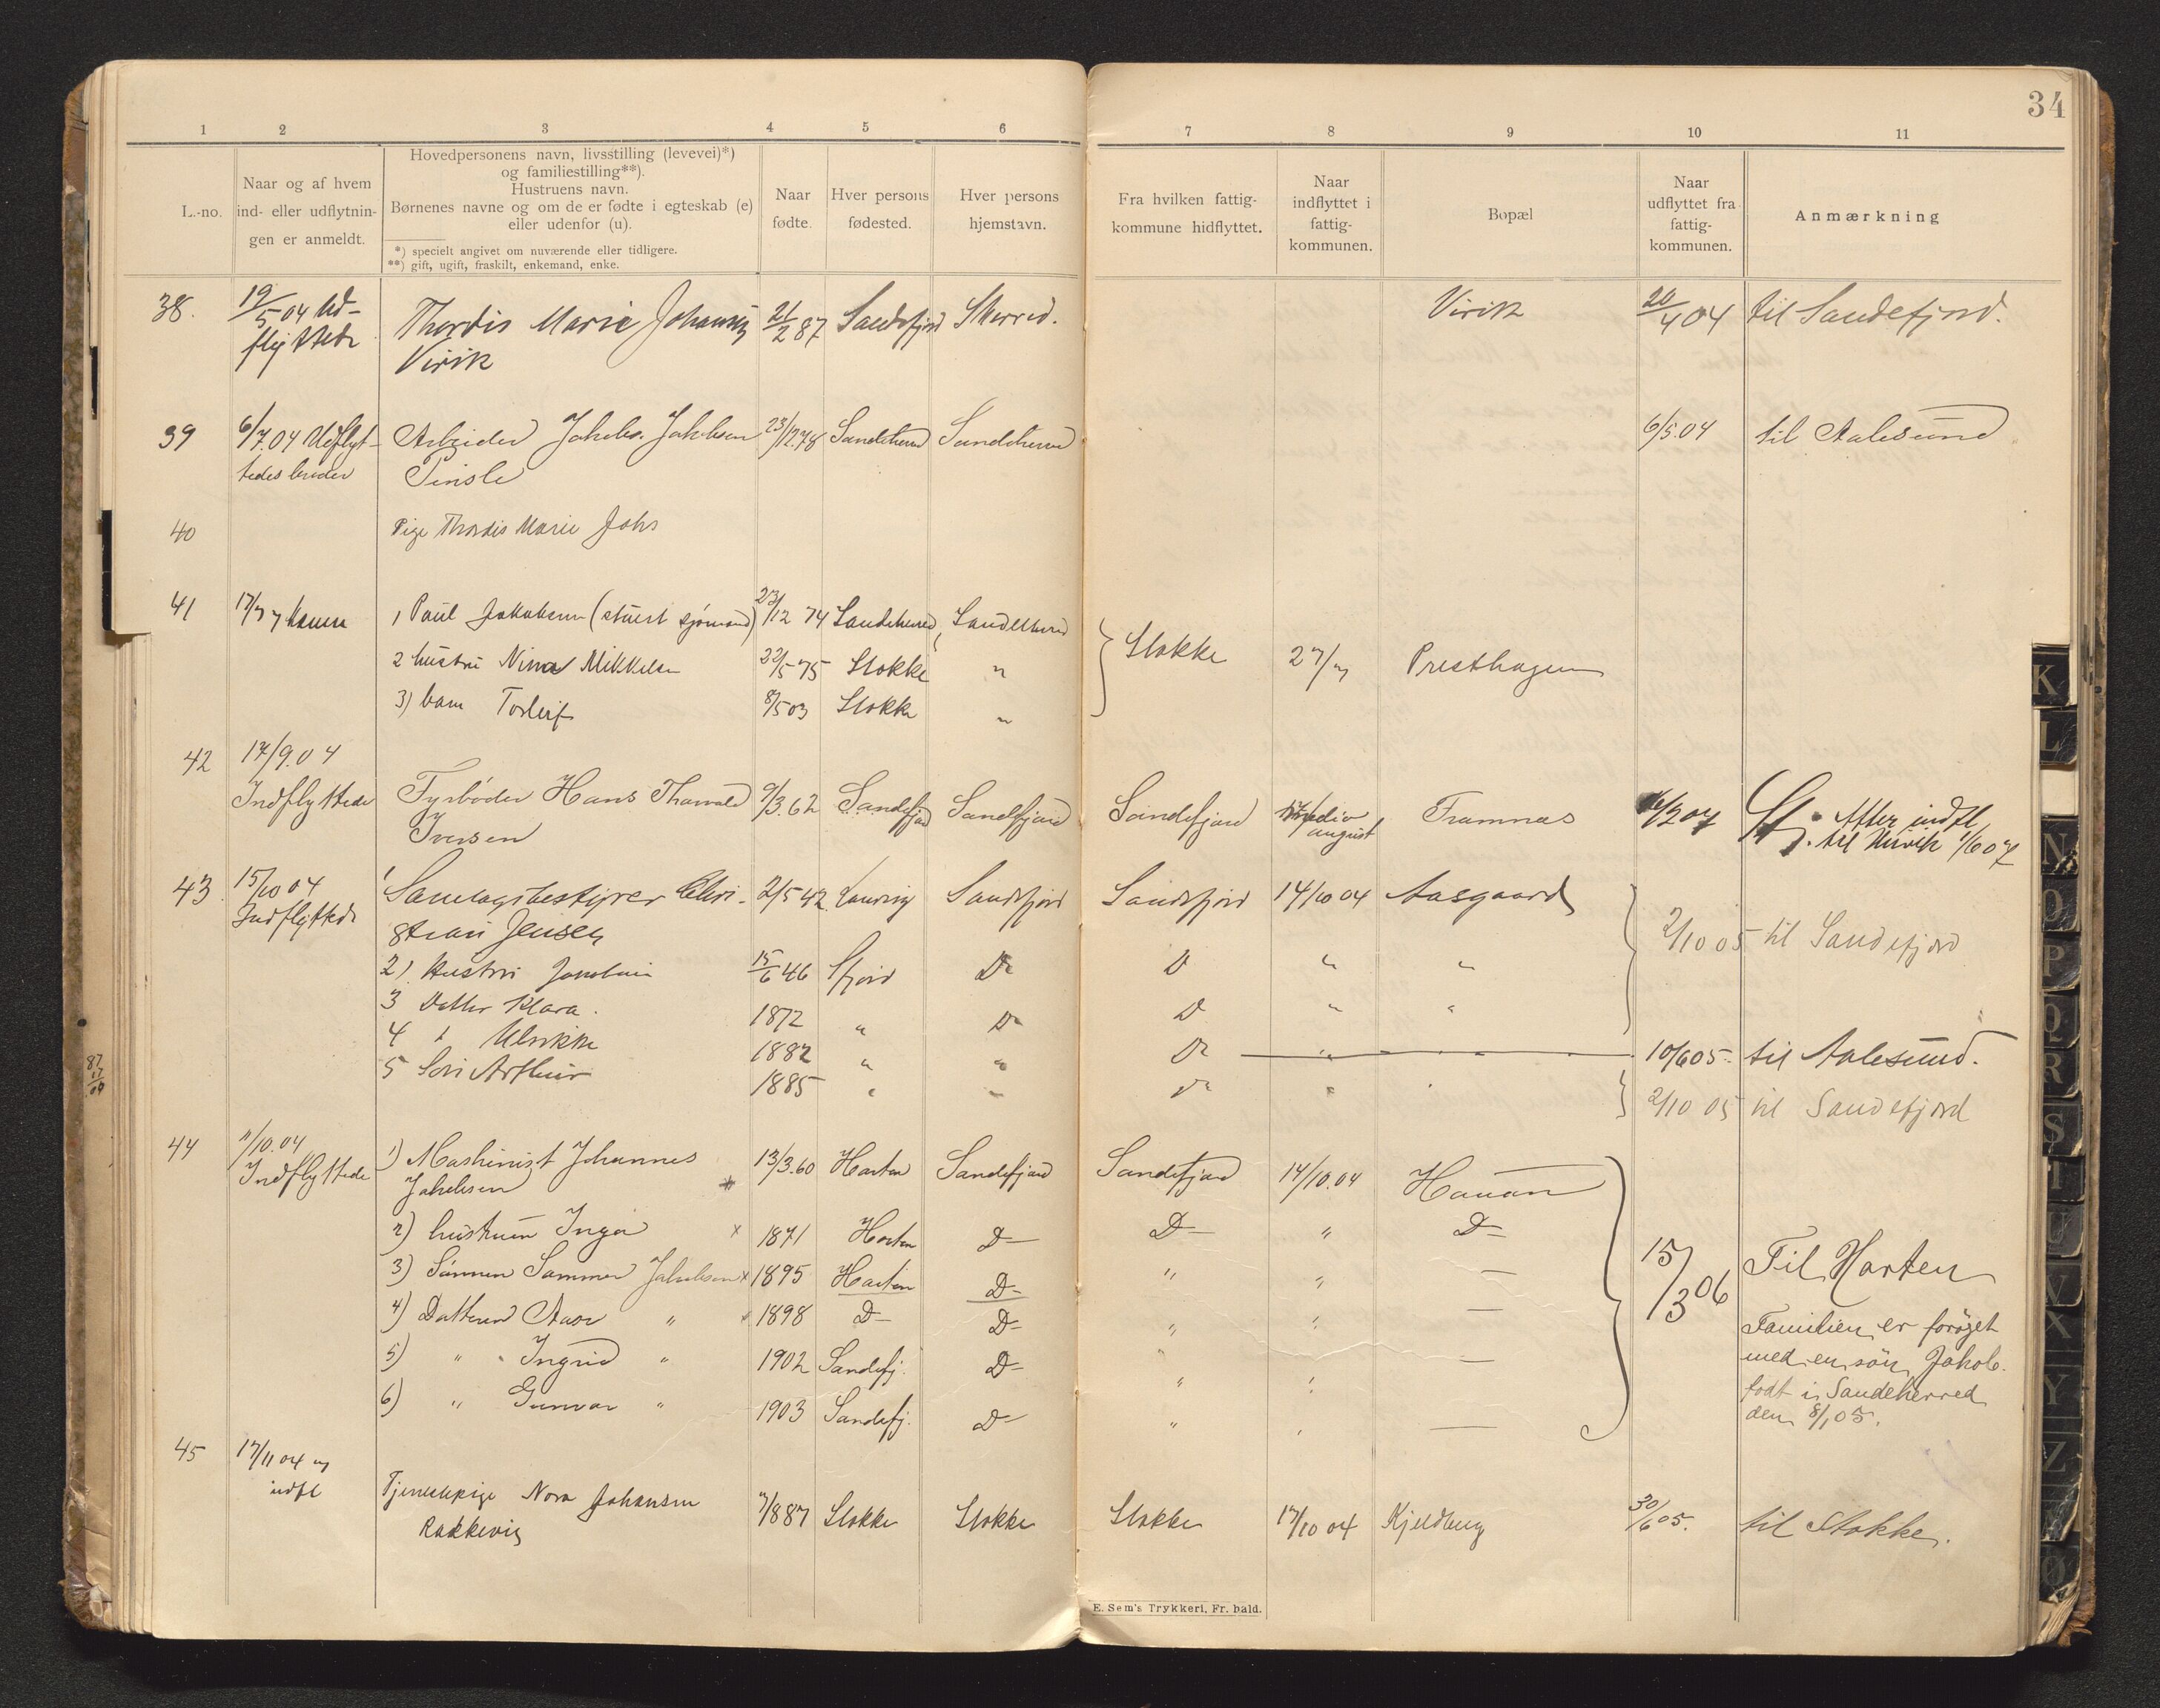 34
1 2 3 4 5 6 7 8 9 10 11
L.-no.
Naar og af hvem
ind- eller udflytnin-
gen er anmeldt.
Hovedpersonens navn, livsstilling (levevei)*)
og familiestilling**).
Hustruens navn.
Børnenes navne og om de er fødte i egteskab (e)
eller udenfor (u).
*) specielt angivet om nuværende eller tidligere.
**) gift, ugift, fraskilt, enkemand, enke.
Naar
fødte.
Hver persons
fødested.
Hver persons
hjemstavn.
Fra hvilken fattig-
kommune hidflyttet.
Naar
indflyttet i
fattig-
kommunen.
Bopæl
Naar
udflyttet fra
fattig-
kommunen.
Anmærkning
38. 19/5 04 Ud- Thordis Marie Johansen 21/2 87 Sandefjord Sherred. Virik 20/4 04 til Sandefjord.
flyttede Virik
39 6/7.04 Udflyt- Arbeider Jakob Jakobsen 23/12.78 Sandeherred Sandeherred 6/5.04 til Aalesund
tedes Pinsle
40 Pige Thordis Marie Johs
41 1 Paul Jakobsen (stuert sjømand) 23/12 74 Sandeherred Sandeherred
2 hustru Nina Mikkelsen 22/5 75 Stokke " Stokke 27/7 Presthagen
3) barn Torleif 8/5 03 Stokke "
42 17/9.04
Indflyttede Fyrbøder Hans Thorvald 9/3.62 Sandefjord Sandefjord Sandefjord medio Framnæs /2 07 Atter indfl
Iversen august til Virik 1/6 07
43 15/10 04 1 Samlagsbestyrer Chri- 2/5 42 Laurvig Sandefjord Sandefjord 14/10 04 Aasgaard
Indflyttede stian Jensen 2/10 05 til Sandefjord
2) Hustru 15/6 46 Sfjord Do D " "
3 Datter Klara. 1872 " Do D " "
4 " Ulrikke 1882 " " Do " 10/6 05. til Aalesund.
5 Søn Arthur 1885 " " Do " 2/10 05 til Sandefjord
44 11/10.04 1) Maskinist Johannes 13/3.60 Horten Sandefjord Sandefjord 14/10.04 Hauan
Indflyttede Jakobsen
2) hustruen Inga x 1871 Horten D— D— " D—
3) Sønnen Sommer Jakobsen x 1895 Horten D— " " — 15/3 06 Til Horten
4) Datteren Aase " x 1898 D— D— " " — Familien er forøget
5) " Ingrid " 1902 Sandefj. D— " " — med en søn Jakob.
6) " Gunvor " 1903 Sandefj. D— " " — født i Sandeherred
den 8/1 05.
45 17/11 04
indfl Tjenestepige Nora Johansen 7/8 87 Stokke Stokke Stokke 17/10 04 Kjeldberg 30/6 05. til Stokke.
Rakkevig
E. Sem's Trykkeri, Fr. hald.
K
L
N
O
P
Q
R
S
T
U
V
X
Y
Z
Æ
Ø